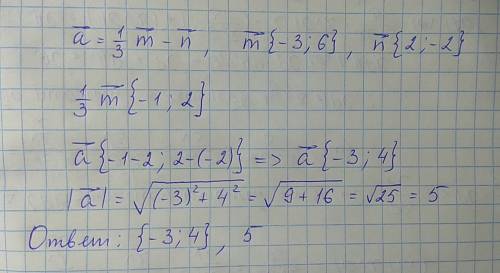 a⃗ = 1/3 m⃗ − n⃗ , m⃗ {−3; 6} , n⃗ {2; −2}
1/3 m⃗ {−1; 2}
a⃗ {−1−2; 2−(−2)} => a⃗ {−3; 4}
|a⃗| = √((−3)² + 4²) = √(9 + 16) = √25 = 5
Ответ: {−3; 4} , 5